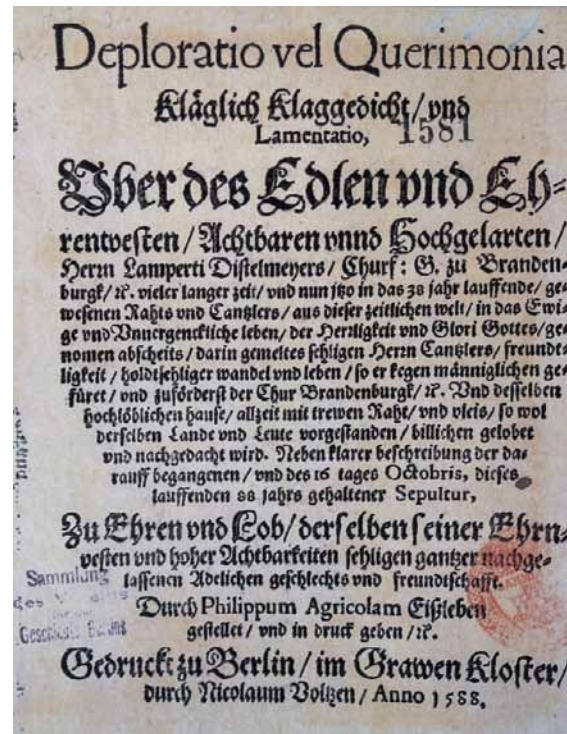 Deploratio vel Querimonia
Kläglich Klaggedicht/ vnd
Lamentatio, 1581
Vber des Edlen vnd Eh-
rentvesten/ Achtbaren vnnd Hochgelarten/
Herrn Lamperti Distelmeyers/ Churf: G. zu Branden-
burgk/ ꝛc. vieler langer zeit/ vnd nun itzo in das 38 jahr lauffende/ ge-
wesenen Rahts vnd Cantzlers/ aus dieser zeitlichen welt/ in das Ewi-
ge vnd Vnuergenckliche leben/ der Herrligkeit vnd Glori Gottes/ ge-
nomen abscheits/ darin gemeltes sehligen Herrn Cantzlers/ freundt-
ligkeit/ holdtsehliger wandel vnd leben/ so er kegen männiglichen ge-
füret/ vnd zuförderst der Chur Brandenburgk/ ꝛc. Vnd desselben
hochlöblichen hause/ allzeit mit trewen Raht/ vnd vleis/ so wol
derselben Lande vnd Leute vorgestanden/ billichen gelobet
vnd nachgedacht wird. Neben klarer beschreibung der da-
rauff begangenen/ vnd des 16 tages Octobris, dieses
lauffenden 88 jahrs gehaltener Sepultur,
Zu Ehren vnd Lob/ derselben seiner Ehrn-
vesten vnd hoher Achtbarkeiten sehligen gantzer nachge-
lassenen Adelichen geschlechts vnd freundtschafft.
Sammlung
des
Durch Philippum Agricolam Eißleben
gestellet/ vnd in druck geben/ ꝛc.
Gedruckt zu Berlin/ im Grawen Kloster/
durch Nicolaum Voltzen/ Anno 1588.